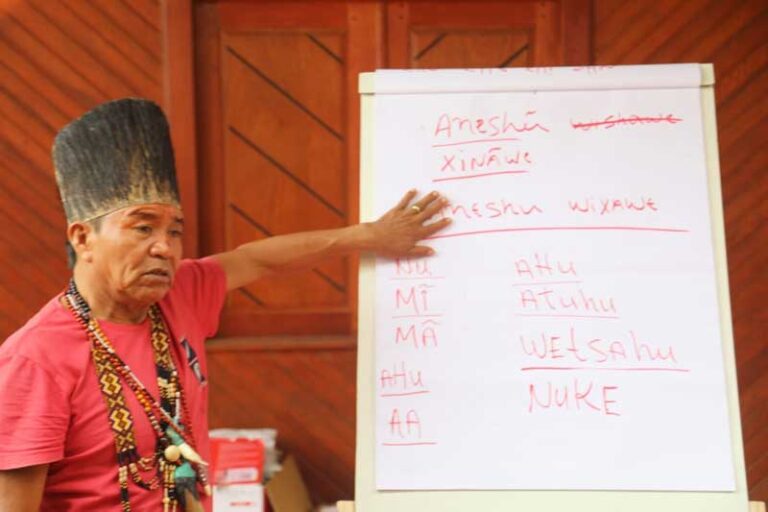 Aneshũ wishawe
XINÃWE
Aneshu wixawe
NU AHU
MĨ ATUHU
MÃ WEtSAHU
AHU NUKE
AA